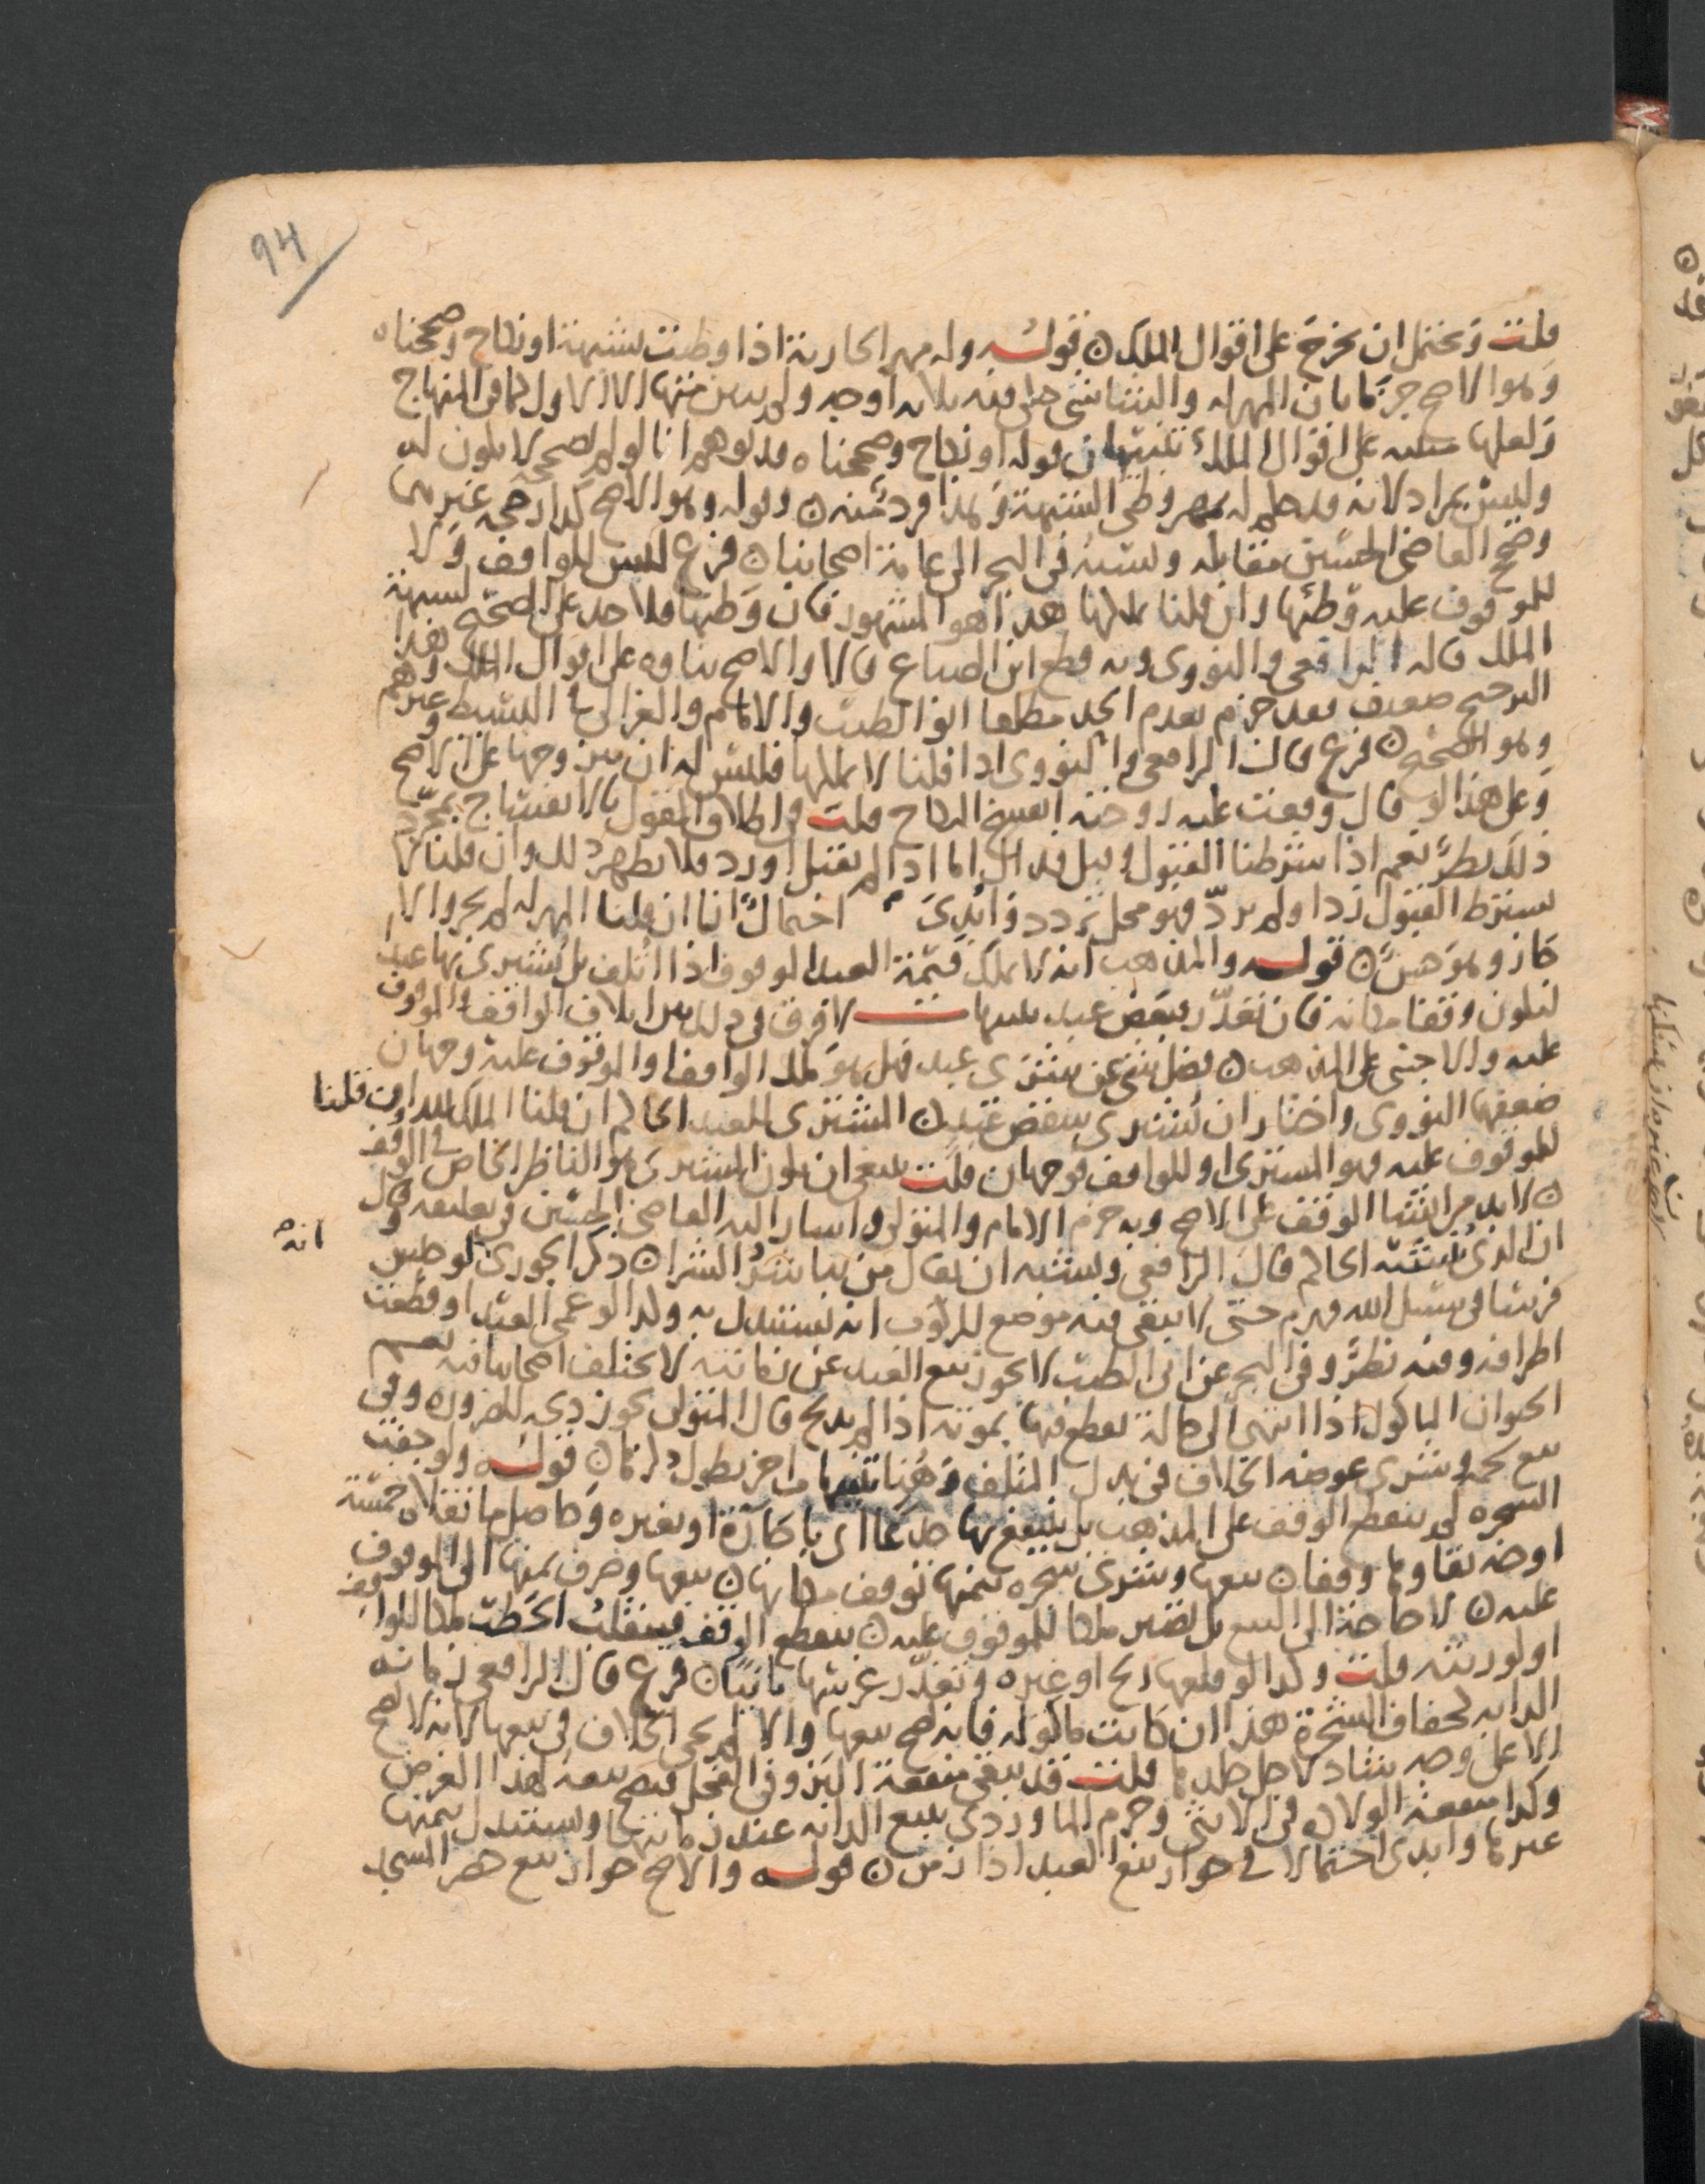 94
قلت ويحتمل ان يخرج على اقوال الملك ن قوله وله مهر الجارية اذا وطئت بشبهة او نكاح وصححناه
وهو الاصح جزما بان المهر له
ولعلها على اقوال الملك تنبيهان قوله او نكاح وصححناه قد يوهم انا لو لم نصححه لا يكون له
وليس بمراد لانه قد جعل له مهر وطي الشبهة وهذا فرد منه ن وقوله وهو الاصح كذا رجحه غيرهما
وصحح القاضي الحسين مقابله ونسبه في البحر الى عامة اصحابنا ن فرع ليس للواقف ولا
للموقوف عليه وطئها وان قلنا ملكها هذا هو المشهور فان وطئها فلا حد على الصحيح لشبهة
الملك قاله الرافعي والنووي وبه قطع ابن الصباغ قالا والاصح بناوه على اقوال الملك وهذا
الترجيح ضعيف فقد جزم بعدم الحد مطلقا ابو الطيب والامام والغزالي في البسيط وغيرهم
وهو الصحيح ن فرع قال الرافعي والنووي اذا قلنا لا يملكها فليس له ان يتزوجها على الاصح
وعلى هذا لو قال وقفت عليه زوجته انفسخ النكاح قلت واطلاق القول بالانفساخ بمجرد
ذلك نظر نعم اذا شرطنا القبول وقبل فذاك اما اذا لم يقبل او رد فلا يظهر ذلك وان قلنا لا
يشترط القبول زدا ولم يرد فهو محل تردد وابدى احتمالا انا ان قلنا المهر له لم يجز والا
جاز وهو حسن ن قوله والمذهب انه لا يملك قيمة العبد الموقوف اذا اتلف بل يشترى بها عبد
ليكون وقفا مكانه فان تعذر فبعض عبد لا فرق في ذلك بين اتلاف الواقف والموقوف
عليه والاجنبي على المذهب ن فضل شي عن مشترى عبد فهل هو ملك الواقف او الموقوف عليه وجهان
ضعفهما النووي واختار ان يشترى ببعض عبد ن المشترى للعبد الحاكم ان قلنا الملك لله وان قلنا
للموقوف عليه فهو المشترى او للواقف فوجهان قلت ينبغي ان يكون المشترى هو الناظر الخاص في الوقف
ن لا بد من انشاء الوقف على الاصح وبه جزم الامام والمتولي واشار اليه القاضي الحسين في تعليقه وقال
ان الذي ينشئه الحاكم قال الرافعي ويشبه ان يقال من باشر الشراء ن ذكر الجوري لو حبس
انه
فرسا في سبيل الله فهرم حتى لا يبقى فيه موضع للركوب انه يستبدل به وكذا لو عمي العبد او قطعت
اطرافه وفيه نظر وفي البحر عن ابي الطيب لا يجوز بيع العبد عن زمانته لا يختلف اصحابنا فيه نعم
الحيوان الماكول اذا انتهى الى حالة يقطع فيها بموته اذا لم يذبح قال المتولي يجوز ذبحه للضرورة وفي
بيع لحمه وشرى عوضه الخلاف في بدل المتلف وهنا تنبيهات اخر يطول ذكرها ن قوله ولو جفت
الشجرة لم ينقطع الوقف على المذهب بل ينتفع بها جذعا اي باجارة او بغيره وحاصل ما نقلاه خمسة
اوجه بقاوها وقفا ن بيعها وشرى شجرة بثمنها توقف مكانها ن بيعها وصرف ثمنها الى الموقوف
عليه ن لا حاجة الى البيع بل تصير ملكا للموقوف عليه ن ينقطع الوقف فينقلب الحطب ملكا للواقف
او لورثته قلت وكذا لو قلعها ريح او غيره وتعذر غرسها ثانيا ن فرع قال الرافعي زمانة
الدابة كجفاف الشجرة هذا ان كانت ماكولة فانه يصح بيعها والا لم يجئ الخلاف في بيعها لانه لا يصح
الا على وجه شاذ لاجل جلدها قلت قد يبقى منفعة النزو في الفحل فيصح بيعه لهذا الغرض
وكذا منفعة الولادة في الانثى وجزم الماوردي ببيع الدابة عند زمانتها ويستبدل بثمنها
غيرها وابدى احتمالا في جواز بيع العبد اذا زمن ن قوله والاصح جواز بيع حصر المسجد